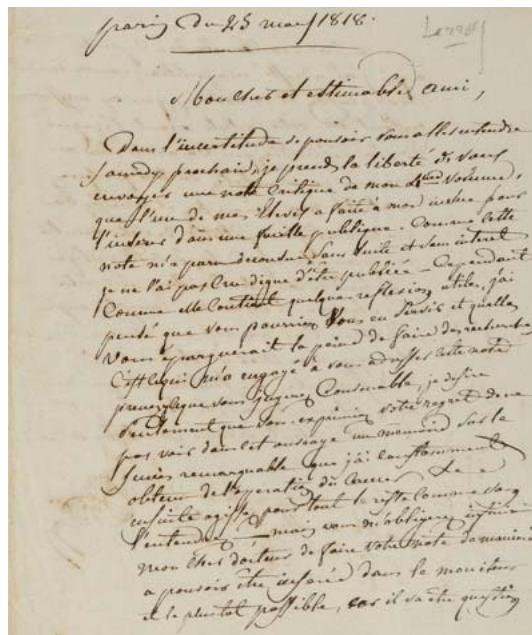 paris du 25 mars 1818.
Larrey
Mon cher et estimable ami,
Dans l'incertitude de pouvoir vous aller entendre
samedy prochain, je prends la liberté de vous
envoyer une note critique de mon 4eme volume,
que l'un de mes Eleves a faite à mon insçu pour
l'insérer dans une feuille publique. Comme cette
note m'a paru decousue sans suite et sans interet
je ne l'ai pas cru digne d'être publiée - Cependant
Comme elle Contient quelques reflexions utiles, j'ai
pensé que vous pourriez vous en servir et qu'elle
vous épargnerait la peine de faire des recherches
C'est ce qui m'a engagé à vous adresser cette note
que vous jugerez Convenable, je desire
seulement que vous exprimiez votre regret de ne
pas voir dans cet ouvrage un memoire sur le
succès remarquable que j'ai constamment
obtenu de l'operation du
ensuite agissez pour tout le reste comme vous
l'entendrez, mais vous m'obligerez infiniment
mon cher docteur de faire votre note de maniere
a pouvoir être inserée dans le moniteur
et le plustot possible, car il va être question